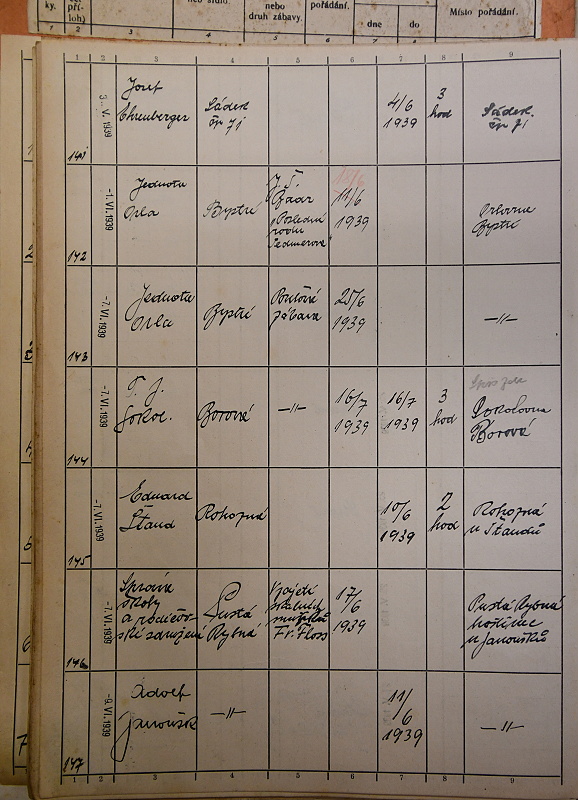 ky.
pří-
loh)
nebo
druh zábavy.
pořádání.
dne
do
Místo pořádání.
1 2 3 4 5 6 7 8 9
141
3. V. 1939
Josef
Ehrenberger
Sádek
čp 71
4/6
1939
3
hod
Sádek
čp 71
142
-1. VI. 1939
Jednota
Orla
Bystré
J. Š.
Baar
"Poslední
rodu
Sedmerova"
11/6
1939
Orlovna
Bystré
143
-7. VI. 1939
Jednota
Orla
Bystré
Pouťová
zábava
25/6
1939
-"-
144
-7. VI. 1939
T. J.
Sokol.
Borová
-"-
16/7
1939
16/7
1939
3
hod
Sokolovna
Borová
145
-7. VI. 1939
Eduard
Štaud
Rohozná
10/6
1939
2
hod
Rohozná
u Štaudů
146
-7. VI. 1939
Správa
školy
a rodičov-
ské sdružení
Pustá
Rybná
V zajetí
skalních
mužíků
Fr. Floss
17/
6
1939
Pustá Rybná
hostinec
u Janoušků
147
-9. VI. 1939
Adolf
Janoušek
-"-
11/
6
1939
-"-
1 2 3 4 5 6 7 8 9